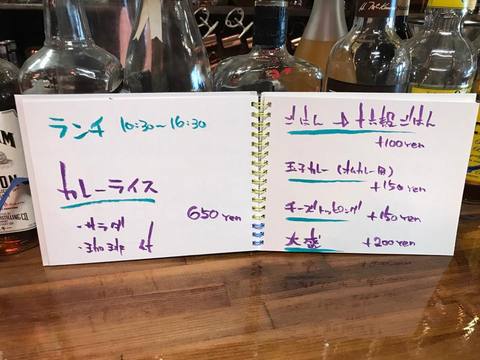 ランチ 10:30~16:30
カレーライス
650yen
・サラダ
付
ごはん → 十六穀ごはん
+100yen
玉子カレー(オムカレー風)
+150yen
チーズトッピング +150yen
大盛 +200yen